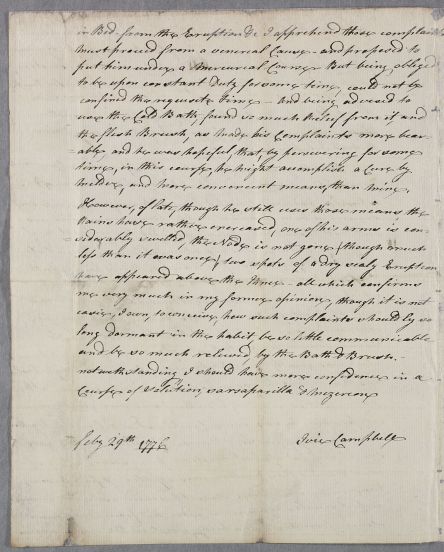 in Bed - from the Eruption &c I apprehend those complaints
must proceed from a venereal Cause - and proposed to
put him under a Mercurial Course - But being obliged
to be upon constant Duty for some time, could not be
confined the requisite time - And being advised to
use the Cold Bath, found so much Relief from it and
the flesh Brush, as made his Complaints more bear-
able, and he was hopeful, that, by persevering for some
time, in this course, he might accomplish a Cure by
milder, and more convenient means, than mine.
However, of late, though he still uses those means, the
Pains have rather encreased, one of his arms is con-
siderably swelled, the Node is not gone, (though much
less than it was once,) two spots of a dry scaly Eruption
have appeared above the Knee - all which confirms
me very much in my former opinion, though it is not
easie, I own, to conceive, how such complaints should ly so
long dormant in the habit, be so little communicable
and be so much relieved by the Bath & Brush. -
notwithstanding I should have more confidence in a
Course of Solution, sarsaparilla & Mezereon
Feby 29th 1776 Ivie Campbell